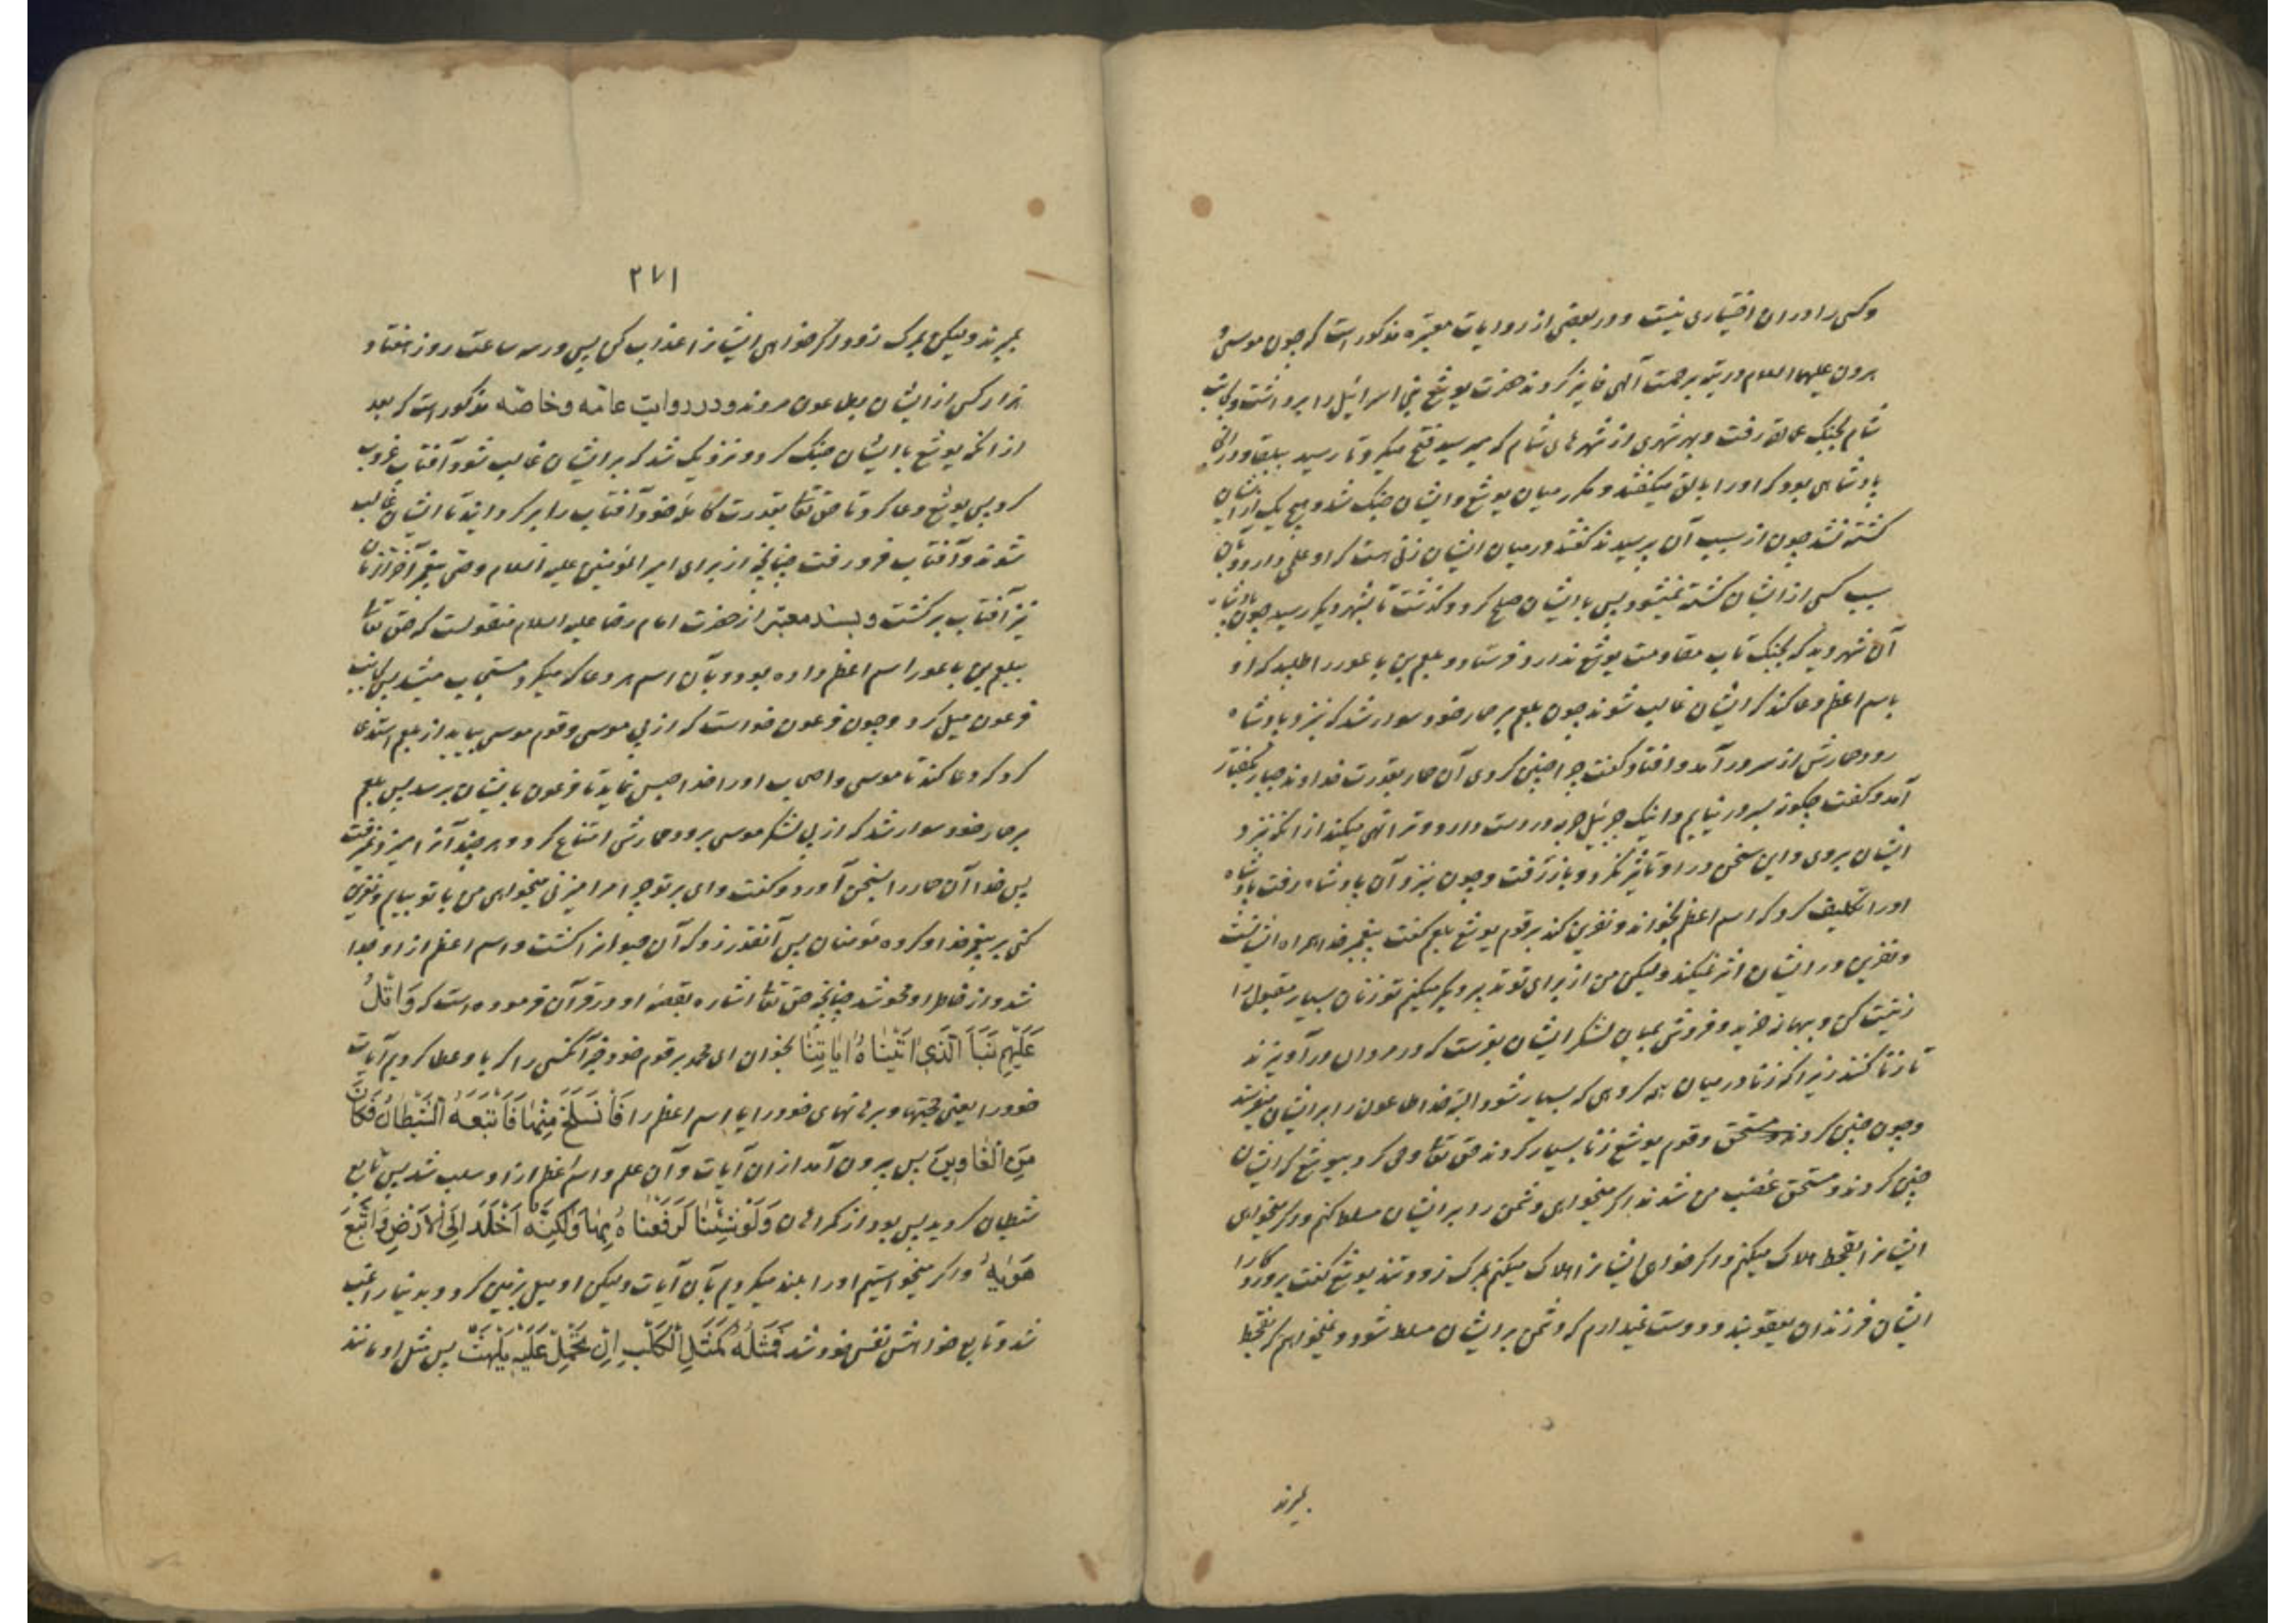 وکسی را در ان اختیاری نیست و در بعضی از روایات معتبره مذکور است که چون موسیٰ
هرون علیهما السلام در تیه برحمت آلهی فایز کردند حضرت یوشع بنی اسرائیل را برداشت و بجانب
شام بجنک عمالقه رفت و بهر شهری از شهرهای شام که میرسید فتح میکرد تا رسید ببلقا و در انجا
پادشاهی بود که او را بالق میکفتند و مکرر میان یوشع و ایشان جنک شد و هیچ یک از ایشان
کشته نشد چون از سبب آن پرسیدند کفتند در میان ایشان زنی هست که او علمی دارد و بآن
سبب کسی از ایشان کشته نمیشود پس با ایشان صلح کرد و کذشت تا بشهر دیکر رسید چون پادشاه
آن شهر دید که بجنک تاب مقاومت یوشع ندارد فرستاد و بلعم بن باعور را طلبید که او
باسم اعظم دعا کند که ایشان غالب شوند چون بلعم بر حمار خود سوار شد که نزد پادشاه
رود حمارش از سر در آمد و افتاد کفت چرا چنین کردی آن حمار بقدرت خداوند جبار بکفتار
آمد و کفت چکونه بسر در نیایم و اینک جبرئیل حربه در دست دارد و ترا نهی میکند از انکه نزد
ایشان بروی و این سخن در او تاثیر نکرد و باز رفت و چون نزد آن پادشاه رفت پادشاه
او را تکلیف کرد که اسم اعظم بخواند و نفرین کند بر قوم یوشع بلعم کفت پیغمبر خدا همراه ایشانست
و نفرین در ایشان اثر نمیکند ولیکن من از برای تو تدبیر دیکر میکنم تو زنان بسیار مقبول را
زینت کن و ببهانه خرید و فروش بمیان لشکر ایشان بفرست که در مردان در آویزند
تا زنا کنند زیرا که زنا در میان هر کروهی که بسیار شود البته خدا طاعون را بر ایشان میفرستد
و چون چنین کردند و مستحق و قوم یوشع زنا بسیار کردند حق تعالی وحی کرد بیوشع که ایشان
چنین کردند و مستحق غضب من شدند اکر میخواهی دشمن را بر ایشان مسلط کنم و اکر میخواهی
ایشانرا بقحط هلاک میکنم و اکر خواهی ایشانرا هلاک میکنم بمرک زود و تند یوشع کفت پروردکارا
ایشان فرزندان یعقوبند و دوست نمیدارم که دشمن بر ایشان مسلط شود و نمیخواهم که بقحط
بمیرند
٢٧١
بمیرند ولیکن بمرک زود اکر خواهی ایشانرا عذاب کن پس در سه ساعت روز هفتاد
هزار کس از ایشان بطاعون مردند و در روایت عامّه و خاصّه مذکور است که بعد
از انکه یوشع با ایشان جنک کرد و نزدیک شد که بر ایشان غالب شود آفتاب غروب
کرد پس یوشع دعا کرد تا حق تعالی بقدرت کامله خود آفتاب را بر کردانید تا ایشان غالب
شدند و آفتاب فرو رفت چنانچه از برای امیر المؤمنین علیه السلام وصی پیغمبر آخر الزمان
نیز آفتاب برکشت و بسند معتبر از حضرت امام رضا علیه السلام منقولست که حق تعالی
ببلعم بن باعور اسم اعظم داده بود و بآن اسم هر دعا که میکرد مستجاب میشد پس بجانب
فرعون میل کرد و چون فرعون خواست که از پی موسی و قوم موسی بیاید از بلعم استدعا
کرد که دعا کند تا موسی و اصحاب او را خدا حبس نماید تا فرعون بایشان برسد پس بلعم
بر حمار خود سوار شد که از پی لشکر موسی برود حمارش امتناع کرد و هر چند آنرا میزد نمیرفت
پس خدا آن حمار را بسخن آورد و کفت وای بر تو چرا مرا میزنی میخواهی من با تو بیایم و نفرین
کنی بر پیغمبر خدا و کروه مؤمنان پس آنقدر زد که آن حیوانرا کشت و اسم اعظم از او جدا
شد و از خاطر او محو شد چنانچه حق تعالی اشاره بقصه او در قرآن فرموده است که وَاتْلُ
عَلَيْهِمْ نَبَأَ الَّذِي اٰتَيْنَاهُ اٰيَاتِنَا بخوان ای محمد بر قوم خود خبر آنکسی را که باو عطا کردیم آیات
خود را یعنی حجتها و برهانهای خود را یا اسم اعظم را فَانْسَلَخَ مِنْهَا فَاَتْبَعَهُ الشَّيْطَانُ فَكَانَ
مِنَ الْغَاوِينَ پس بیرون آمد از ان آیات و آن علم و اسم اعظم از او سلب شد پس تابع
شیطان کردید پس بود از کمراهان وَلَوْ شِئْنَا لَرَفَعْنَاهُ بِهَا وَلٰكِنَّهُ اَخْلَدَ اِلَى الْاَرْضِ وَاتَّبَعَ
هَوٰيهُ و اکر میخواستیم او را بلند میکردیم بآن آیات ولیکن او میل بزمین کرد و بدنیا راغب
شد و تابع خواهش نفس خود شد فَمَثَلُهُ كَمَثَلِ الْكَلْبِ اِنْ تَحْمِلْ عَلَيْهِ يَلْهَثْ پس مثل او مانند